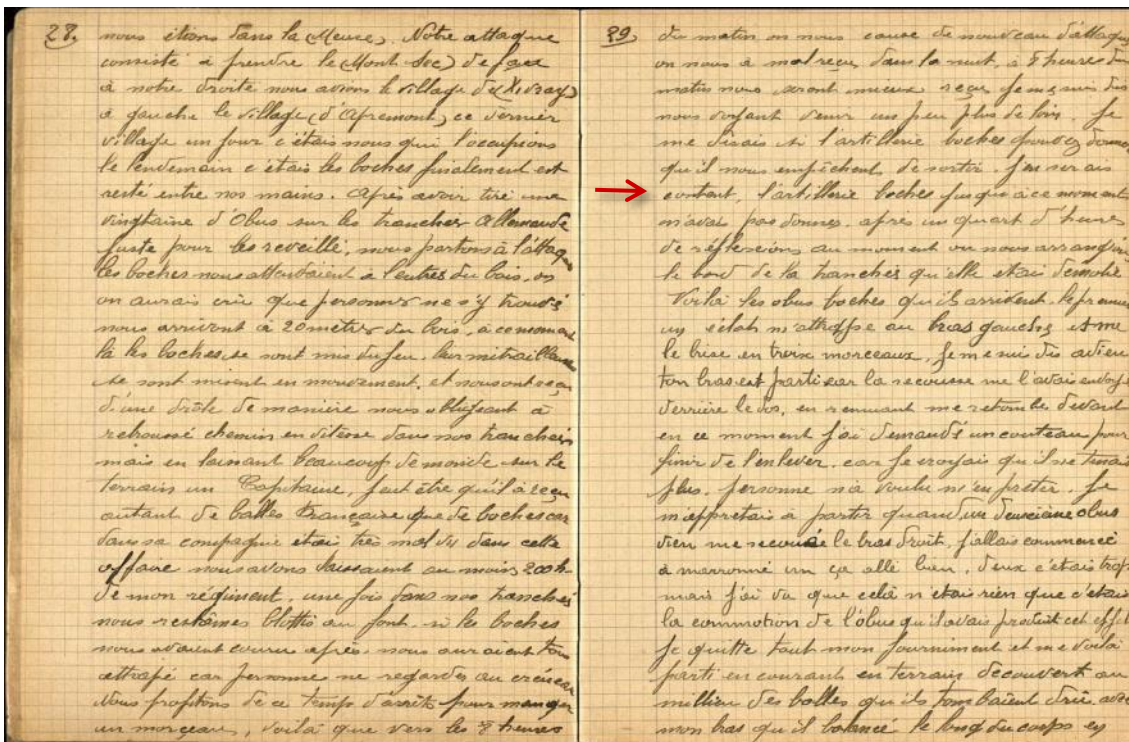 28.
nous étions dans la (Meuse). Notre attaque
consisté à prendre le (Mont Sec) de face
à notre droite nous avions le village de (Xivray)
à gauche le village (d'Apremont) ce dernier
village un jour c'étais nous qui l'occupions
le lendemain c'étais les boches finalement est
resté entre nos mains. Après avoir tiré une
vingtaine d'Obus sur les trancher Allemande
juste pour les reveillé, nous partons à l'attaque
les boches nous attendaient a l'entres du bois, on
on aurais crue que personner ne s'y trouvé
nous arrivont à 20 metres du bois, à ce moment
là les boches se sont mis du feu, leur mitrailleuses
se sont misent en mouvement, et nous ont reçu
d'une drôle de manière nous obligeant à
rebroussé chemin en vitesse dans nos tranchées
mais en laissant beaucoup de monde sur le
terrain un Capitaine, peut être qu'il à reçu
autant de balles Française que de boches car
dans sa compagnie étais très mal vu dans cette
affaire nous avons laissaient au moins 200 h.
de mon régiment, une fois dans nos tranchées
nous restâmes blottis au font, si les boches
nous avaient couru après, nous auraient tous
attrapé car personne ne regardes au créneau
Nous profitons de ce temp d'arrêts pour manger
un morçeau, voilà que vers les 8 heures
29
du matin on nous cause de nouveau d'attaque
on nous à mal reçu dans la nuit, à 8 heures du
matin nous seront mieux reçu je me suis dis
nous voyant venir un peu plus de loin. Je
me disais si l'artillerie boches pouvez donner
qu'il nous empêchent de sortir. J'en serais
contant, l'artillerie boches jusqu'à ce moment
n'avai pas donner. après un quart d'heures
de réflexions au moment ou nous arrangions
le bord de la tranches qu'elle étais démolie
Voilà les obus boches qu'ils arrivent. le premier
un éclat m'attrappe au bras gauches et me
le brise en troix morceaux, je me sui dis adieu
ton bras est parti car la secousse me l'avais envoyé
derrière le dos, en remuant me retombe devant
en ce moment j'ai demandé un couteau pour
finir de l'enlever. car je croyais qu'il ne tenais
plus. personne n'à voulu m'en prêter. Je
m'appretais à partir quand un deuxième obus
vien me secoué le bras droit, j'allais commencé
à marronné un ça allé bien, deux c'étais trop
mais j'ai vu que celà n'étais rien que c'étais
la commotion de l'obus qu'il avais produit cet effet
Je quitte tout mon fourniment et me voilà
parti en courant en terrain decouvert au
millieu des balles qu'ils tombaient drûe avec
mon bras qu'il balancé le long du corps en